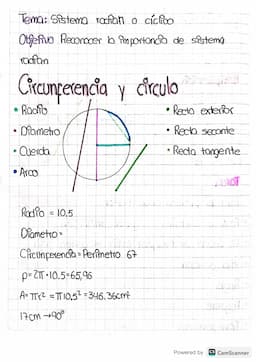 Tema: Sistema radian o cíclico
Objetivo Reconocer la importancia de sistema
radian
Circunferencia y circulo
• Radio
• Diametro
• Cuerda
• Arco
• Recta exterior
• Recta secante
• Recta tangente
Radio = 10,5
Diametro=
Circunferencia= Perimetro 67
p=2π·10,5=65,96
A=πr²=π10,5²=346,36cm²
17cm→90°
Powered by CS CamScanner